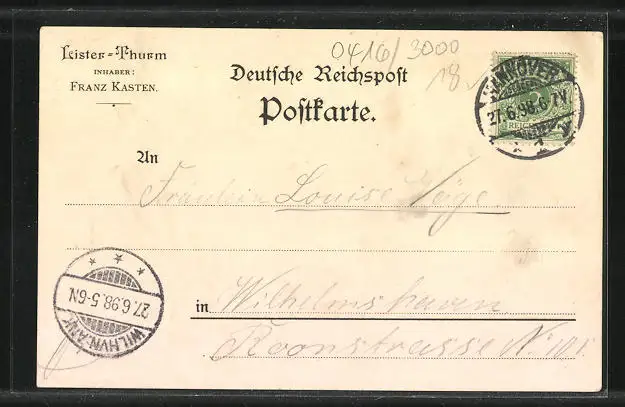 Lister-Thurm
INHABER:
FRANZ KASTEN.
0416/3000
18
Deutsche Reichspost
Postkarte.
HANNOVER
27.6.98.6-7N
1
REICHSPOST
An
Fräulein Louise
in Wilhelmshaven
Roonstrasse N. 101.
27.6.98.5-6N
WILHVN-ANK